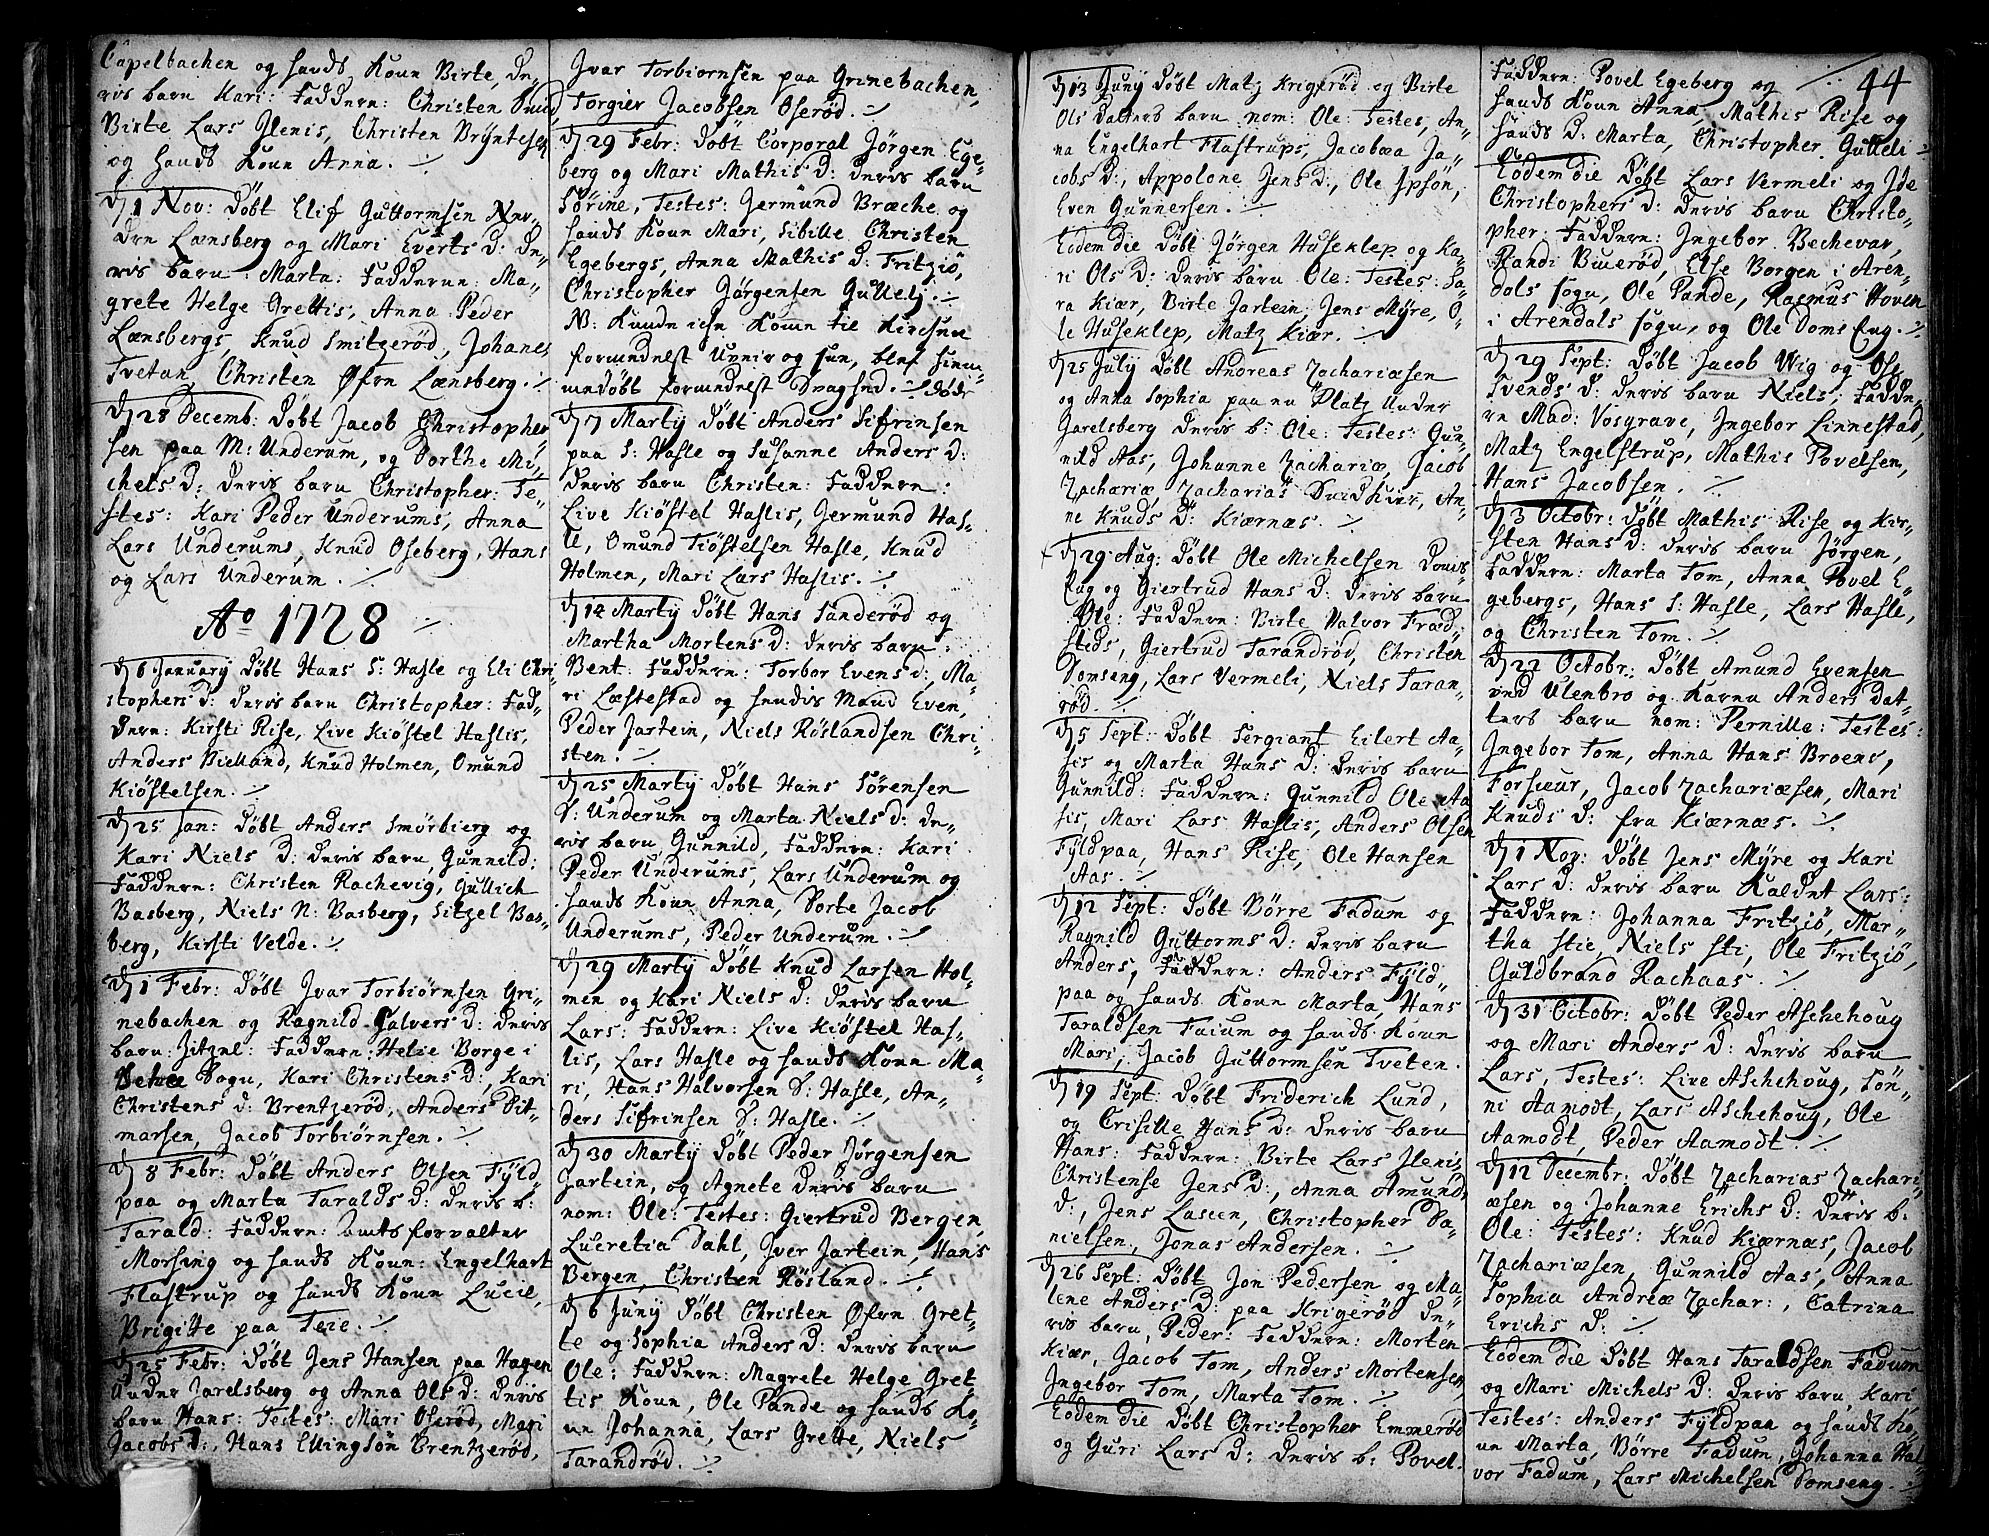 Capelbachen og hands Koun Birte, de-
ris barn Kari: Faddern: Christen Smid,
Birte Lars Ilenis, Christen Bryntesen
og hands Koun Anna. ./.
D 1 Nov: Döbt Elif Guttormsen Nev-
dre Lænsberg og Mari Everts D: de-
ris barn Marta: Fadderne: Ma-
grete Helge Grettis, Anna Peder
Lænsbergs, Knud Smitzeröd, Johanes
Tvetan, Christen Öfre Lænsberg. ./.
D 28 Decemb: Döbt Jacob Christopher-
sen paa M: Underum, og Dorthe Mi-
chels D: deris barn Christopher: Te-
stes: Kari Peder Underums, Anna
Lars Underums, Knud Oseberg, Hans
og Lars Underum. ./.
Ao 1728 ./.
D 6 January Döbt Hans S: Hasle og Eli Chri-
stophers D: deris barn Christopher: Fad-
dern: Kirsti Rise, Live Kiöstel Haslis,
Anders Bielland, Knud Holmen, Omund
Kiöstelsen. ./.
D 25 Jan: Döbt Anders Smörbierg og
Kari Niels D: deris barn Gunnild:
Faddern: Christen Rachevig, Gullich
Basberg, Niels N: Basberg, Sitzel Bas-
berg, Kirsti Velde. ./.
D 1 Febr: Döbt Ivar Torbiörnsen Gri-
nebachen og Ragnild Halvers D: deris
barn Zitzel: Faddern: Helie Borge i
Sogn, Kari Christens D:, Kari
Christens D: Brentzeröd, Anders Dit-
marsen, Jacob Torbiörnsen. ./.
D 8 Febr: Döbt Anders Olsen Fyld-
paa og Marta Taralds D: deris b:
Tarald: Faddern: Amts forvalter
Morsing og hands Koun: Engelhart
Flastrup og hands Koun Lucie,
Brigitte paa Teie. ./.
D 25 Febr: Döbt Jens Hansen paa Hagen
under Jarelsberg og Anna Ols D: deris
barn Hans: Testes: Mari Oseröd, Mari
Jacobs D:, Hans Ellingsön Brentzeröd,
Ivar Torbiornsen paa Grinebachen,
Torgier Jacobsen Oseröd. ./.
D 29 Febr: Döbt Corporal Jörgen Ege-
berg og Mari Mathis D: deris barn
Sörine, Testes: Germund Bræche og
hands Koun Mari, Sibille Christen
Egebergs, Anna Mathis D: Fritziö,
Christopher Jörgensen Gullelj. ./.
NB: Kunde ichr Komme til Kirchen
formedelst Uveir og sne, blef hiem-
medöbt formedelst Svaghed. ./. döde
D 7 Martij Döbt Anders Sifrinsen
paa S: Hasle og Susanne Anders D:
deris barn Christen: Faddern:
Live Kiöstel Haslis, Germund Has-
le, Omund Kiöstelsen Hasle, Knud
Holmen, Mari Lars Haslis. ./.
D 14 Martij Döbt Hans Sanderöd og
Martha Mortens D: deris barn
Bent: Faddern: Torbor Evens D:, Ma-
ri Læstestad og hendis Mand Even,
Peder Jartein, Niels Röslandsen Chri-
sten. ./.
D 25 Martij Döbt Hans Sörensen
S: Underum og Marta Niels D: de-
ris barn Gunnild, Faddern: Kari
Peder Underums, Lars Underum og
hands Koun Anna, Dorte Jacob
Underums, Peder Underum. ./.
D 29 Martij Döbt Knud Larsen Hol-
men og Kari Niels D: deris barn
Lars: Faddern: Live Kiöstel Has-
lis, Lars Hasle og hands Koun Ma-
ri, Hans Halvorsen S: Hasle, An-
ders Sifrinsen S: Hasle. ./.
D 30 Martij Döbt Peder Jörgensen
Jartein, og Agnete deris barn
nom: Ole: Testes: Giertrud Bergen,
Lucretia Dahl, Iver Jartein, Hans
Bergen, Christen Rösland. ./.
D 6 Junij Döbt Christen Öfre Gret-
te og Sophia Anders D: deris barn
Ole: Faddern: Magrete Helge Gret-
tis Koun, Ole Pande og hands Ko-
un Johanna, Lars Grette, Niels
Tarandröd. ./.
D 13 Junij Döbt Matz Krigeröd og Birte
Ols Datters barn nom: Ole: Testes, An-
na Engelhart Flastrups, Jacobæa Ja-
cobs D:, Appolone Jens D:, Ole Ipsön,
Even Gunnersen. ./.
Eodem die Döbt Jörgen Huseklep og Ka-
ri Ols D: deris barn Ole: Testes: Sa-
ra Kiær, Birte Jartein, Jens Myre, O-
le Huseklep, Matz Kiær. ./.
D 25 July Döbt Andreas Zachariæsen
og Anna Sophia paa en Platz under
Jarelsberg deris b: Ole: Testes: Gun-
nild Aas, Johanne Zachariæ, Jacob
Zachæriæ, Zacharias Smidhuer, An-
ne Knuds D: Kiærnæs. ./.
D 29 Aug: Döbt Ole Michelsen Doms-
Eug og Giertrud Hans D: deris barn
Ole: Faddern: Birte Halvor Fræd-
steds, Giertrud Tarandröd, Christen
Domseng, Lars Vermeli, Niels Taran-
röd. ./.
D 5 Sept: Döbt Sergiant Eilert Aa-
sis og Marta Hans D: deris barn
Gunnild: Faddern: Gunnild Ole Aa-
sis, Mari Lars Haslis, Anders Olsen
Fyldpaa, Hans Rise, Ole Hansen
Aas. ./.
D 12 Sept: Döbt Börre Fadum og
Ragnild Guttorms D: deris barn
Anders, Faddern: Anders Fyld-
paa og hands Koun Marta, Hans
Taraldsen Faium og hands Koun
Mari, Jacob Guttormsen Tveten.
D 19 Sept: Döbt Friderich Lund,
og Crisille Hans D: deris barn
Hans: Faddern: Birte Lars Ilenis,
Christense Jens D:, Anna Amund
D:, Jens Lassen, Christopher Da-
nielsen, Jonas Andersen. ./.
D 26 Sept: Döbt Jon Pedersen og Ma-
lene Anders D: paa Krigeröd de-
ris barn, Peder: Faddern: Morten
Kiær, Jacob Tom, Anders Mortensen
Ingebor Tom, Marta Tom. ./.
Eodem die Döbt Christopher Emmeröd
og Guri Lars D: deris b: Povel.
44
Faddern: Povel Egeberg og ./.
hands Koun Anna, Mathis Rise og
hands D: Marta, Christopher Gulleli ./.
Eodem die Döbt Lars Vermeli og Ide
Christophers D: deris barn Christo-
pher: Faddern: Ingebor Bechevar,
Randi Bueröd, Else Borgen i Aren-
dals sogn, Ole Pande, Rasmus Hoven
i Arendals sogn, og Ole Doms Eug. ./.
D 29 Sept: Döbt Jacob Wig og Ose
Svends D: deris barn Niels, Fadde-
rn Mad: Vosgrave, Ingebor Linnestad,
Matz Engelstrup, Mathis Povelsen,
Hans Jacobsen. ./.
D 3 Octobr: Döbt Mathis Rise og Kir-
sten Hans D: deris barn Jörgen,
Faddern: Marta Tom, Anna Povel E-
gebergs, Hans S: Hasle, Lars Hasle,
og Christen Tom. ./.
D 22 Octobr: Döbt Amund Evensen
ved Ulenbro og Karen Anders dat-
ters barn nom: Pernille: Testes:
Ingebor Tom, Anna Hans Broens,
Torsuur, Jacob Zachariæsen, Mari
Knuds D: fra Kiærnæs. ./.
D 1 Nov: Döbt Jens Myre og Kari
Lars D: deris barn Kaldet Lars:
Faddern: Johanna Fritziö, Mar-
tha Stie, Niels Sti, Ole Fritziö,
Guldbrand Rachaas. ./.
D 31 Octobr: Döbt Peder Aschehoug
og Mari Anders D: deris barn
Lars, Testes: Live Aschehoug, Sön-
ni Aamodt, Lars Aschehoug, Ole
Aamodt, Peder Aamodt ./.
D 12 Decembr: Döbt Zacharias Zachari-
æsen og Johanne Erichs D: deris b:
Ole: Testes: Knud Kiærnæs, Jacob
Zachariæsen, Gunnild Aas, Anna
Sophia Andreæ Zachar:, Catrina
Erichs D: ./.
Eodem die Döbt Hans Taraldsen Fadum
og Mari Michels D: deris barn Kari
Testes: Anders Fyldpaa og hands Ko-
un Marta, Börre Fadum, Johanna Hal-
vor Fadum, Lars Michelsen Domseng. ./.